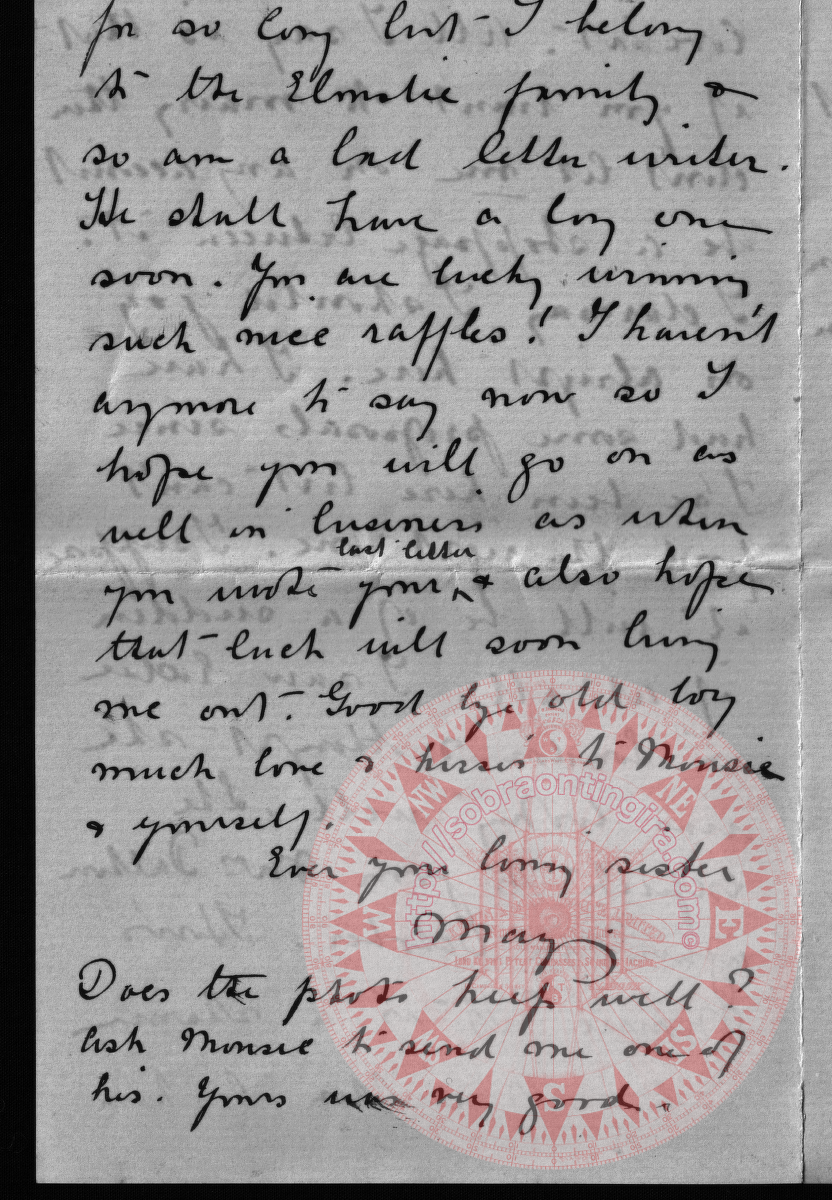 for so long but I belong
to the Elmslie family &
so am a bad letter writer.
He shall have a long one
soon. You are lucky winning
such nice raffles! I haven't
anymore to say now so I
hope you will go on as
well in business as when
last letter
you wrote your & also hope
that luck will soon bring
me out. Good bye old boy
much love & kisses to Mousie
& yourself.
Ever your loving sister
May
Does the photo keep well?
Ask Mousie to send me one of
his. Yours was very good.
http://sobraontingira.com©
NW
NE
W
E
S